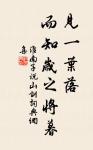 見一葉落
而知歲之將暮
淮南子說山訓詞典網
集